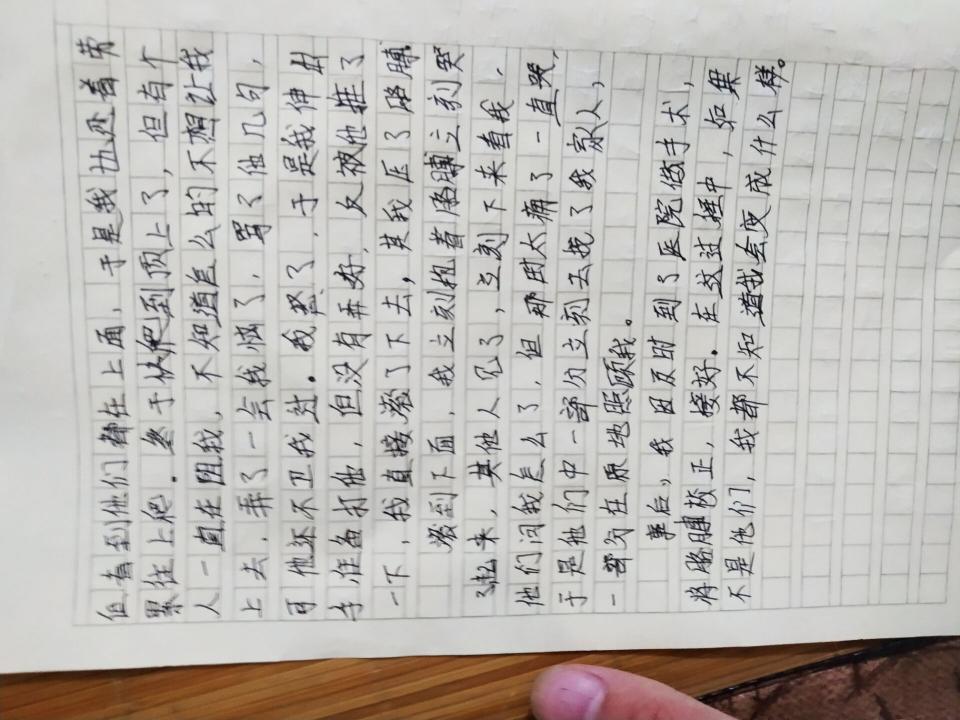 但看到他们都在上面，于是我也顶着劳
累往上爬。终于快爬到顶上了，但有个
人一直在阻我，不知道怎么的不想让我
上去，弄了一会我恼了，骂了他几句，
可他还不卫我过。我怒了，于是我伸出
手准备打他，但没有弄好，反被他推了
一下，我直接滚了下去，其我压了胳膊
滚到下面，我立刻抱着胳膊立刻哭
了起来，其他人见了，立刻下来看我，
他们问我怎么了，但那因太痛了一直哭，
于是他们中一部分立刻去找了我家人，
一部分在原地照顾我。
事后，我因及时到了医院做手术，
将胳膊校正，接好。在这过程中，如果
不是他们，我都不知道我会变成什么样。